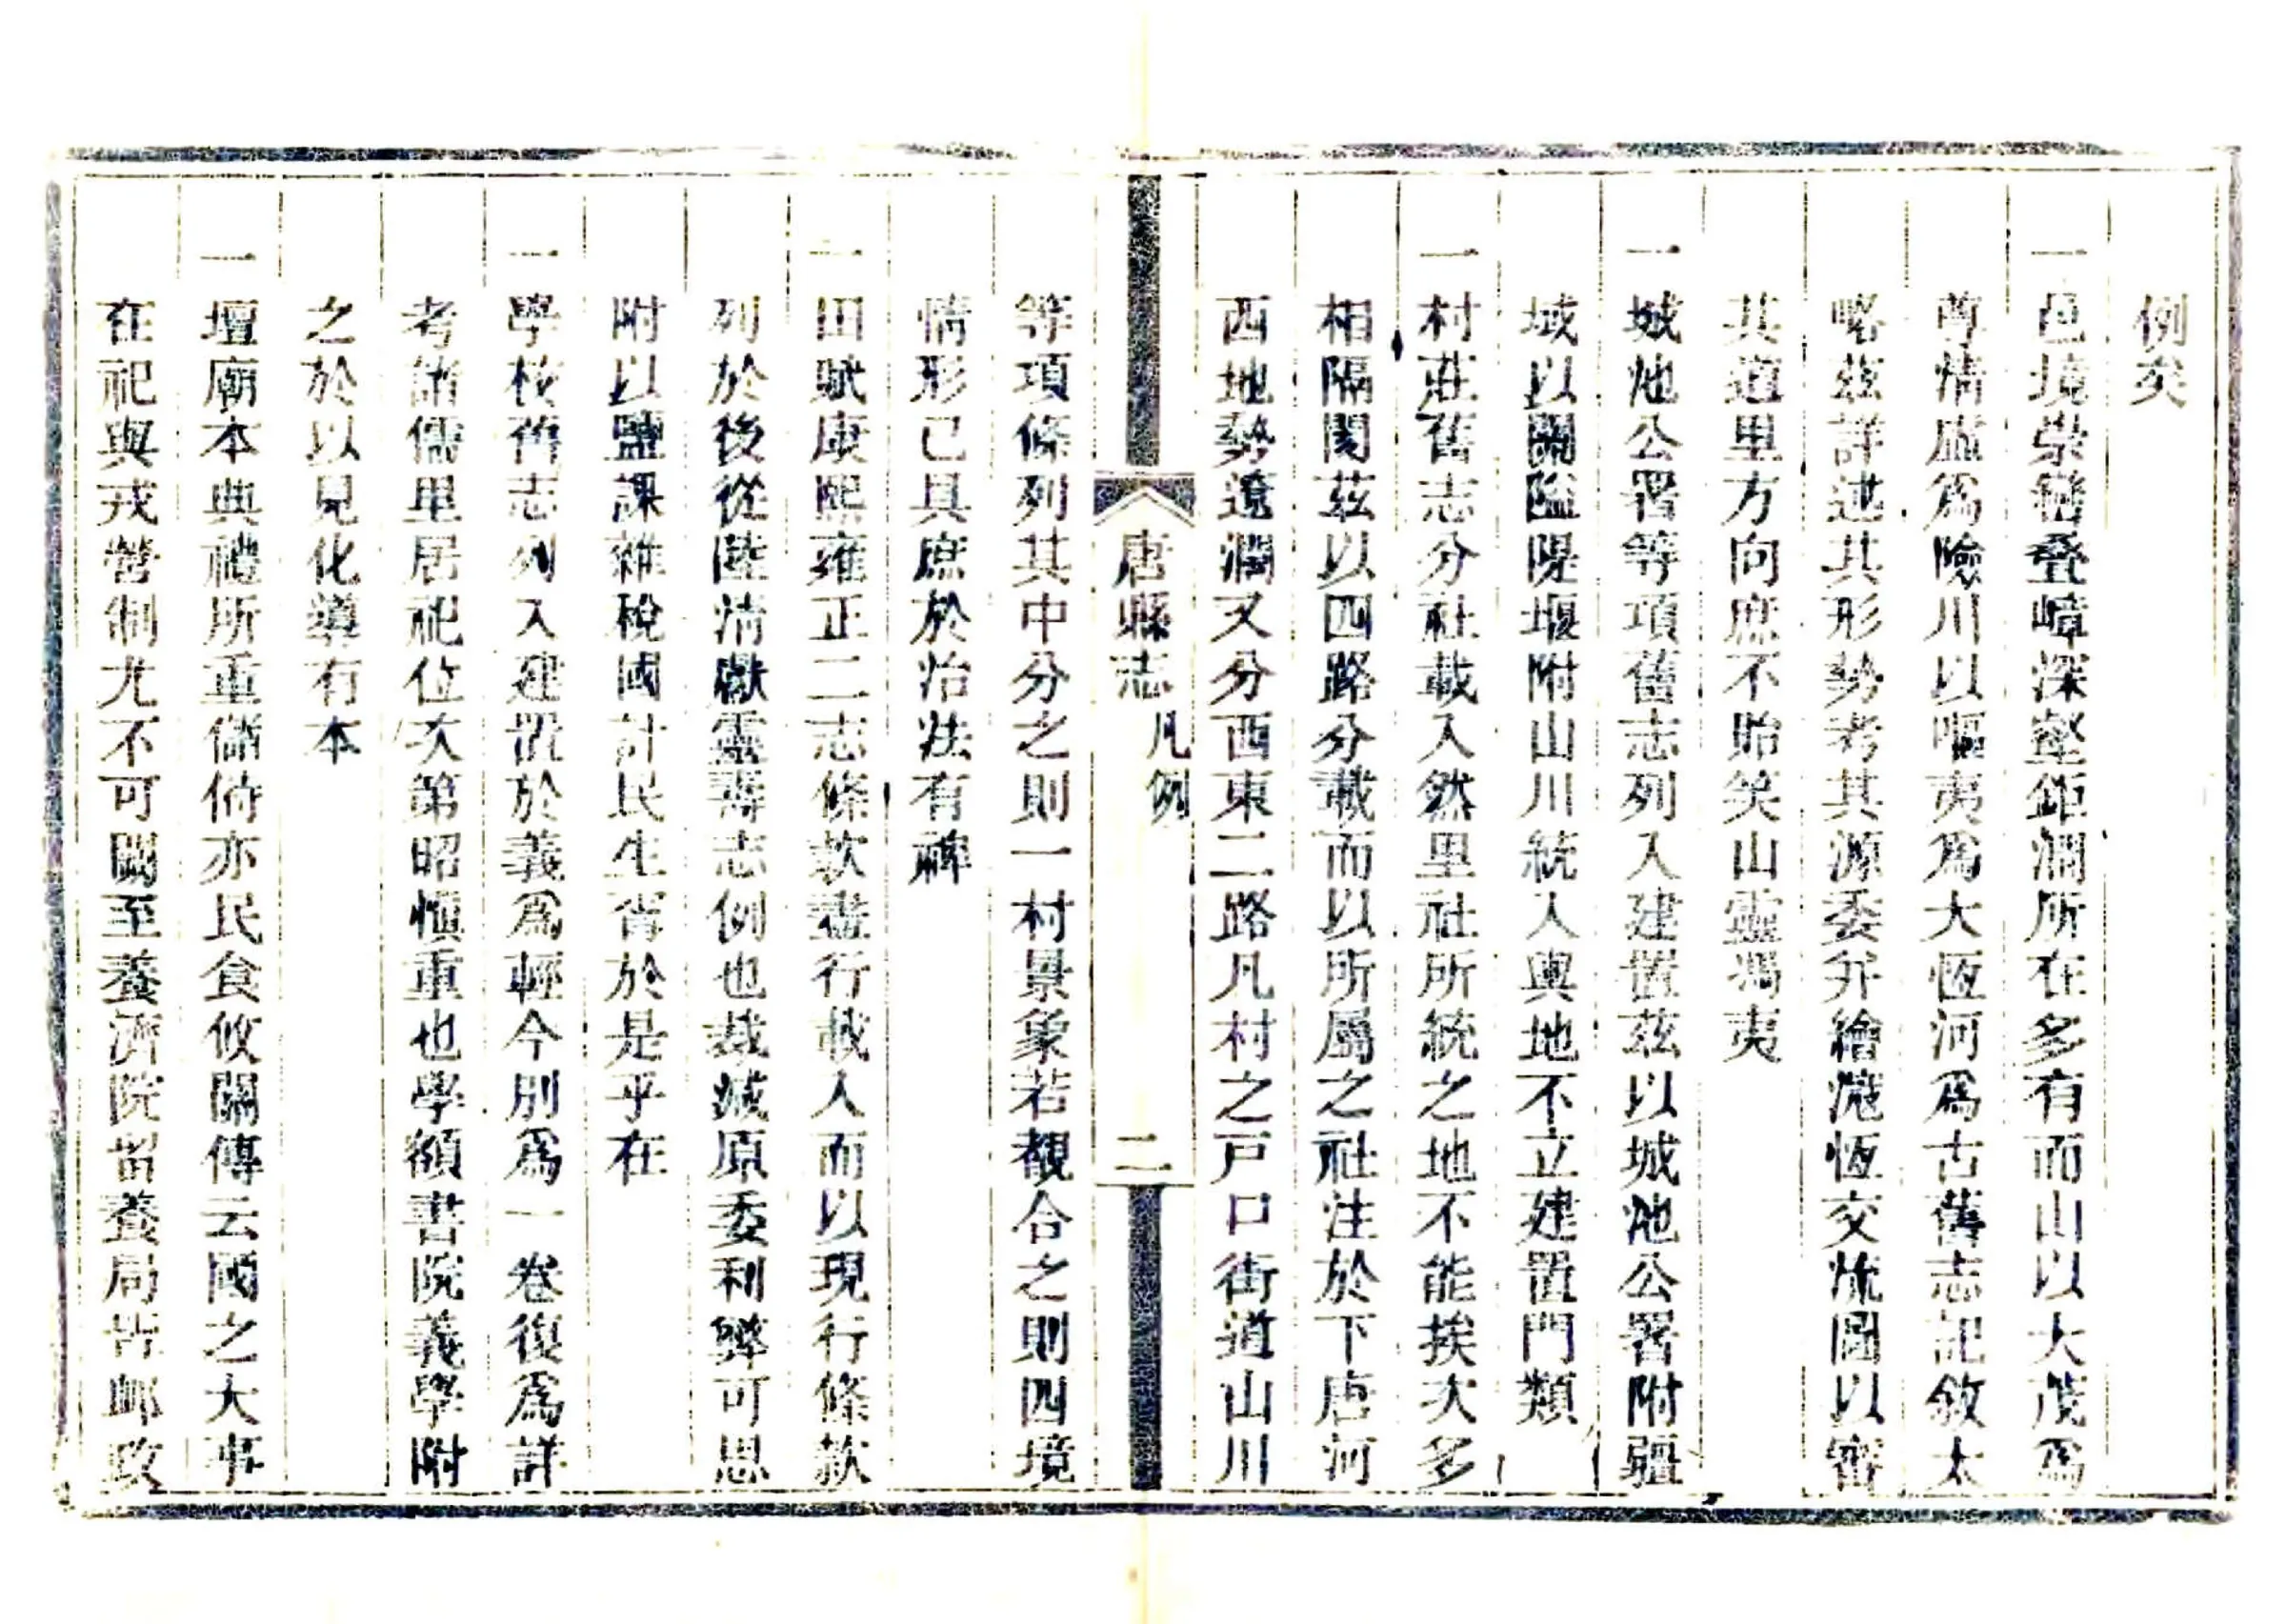 例矣
一邑境崇巒叠嶂深壑鉅澗所在多有而山以大茂爲
尊情虛爲險川以嘔夷爲大恆河爲古舊志記敘太
略茲詳述其形勢考其源委幷繪滱恆交流圖以審
其道里方向庶不貽笑山靈獨夷
一城池公署等項舊志列入建置茲以城池公署附疆
域以關隘隄堰附山川統入輿地不立建置門類
一村莊舊志分社載入然里社所統之地不能挨次多
相隔閡茲以四路分載而以所屬之社注於下唐河
西地勢遼濶又分西東二路凡村之戸口街道山川
唐縣志 凡例 二
等項條列其中分之則一村景象若覩合之則四境
情形已具庶於治法有裨
一田賦康熙雍正二志條款盡行載入而以現行條款
列於後從陸淸獻靈壽志例也裁減原委利弊可思
附以鹽課雜稅國計民生胥於是乎在
一學校舊志列入建置於義爲輕今別爲一卷復爲詳
考諸儒里居祀位次第昭愼重也學額書院義學附
之於以見化導有本
一壇廟本典禮所重儲偫亦民食攸關傳云國之大事
在祀與戎營制尤不可闕至養濟院畱養局皆䘏政